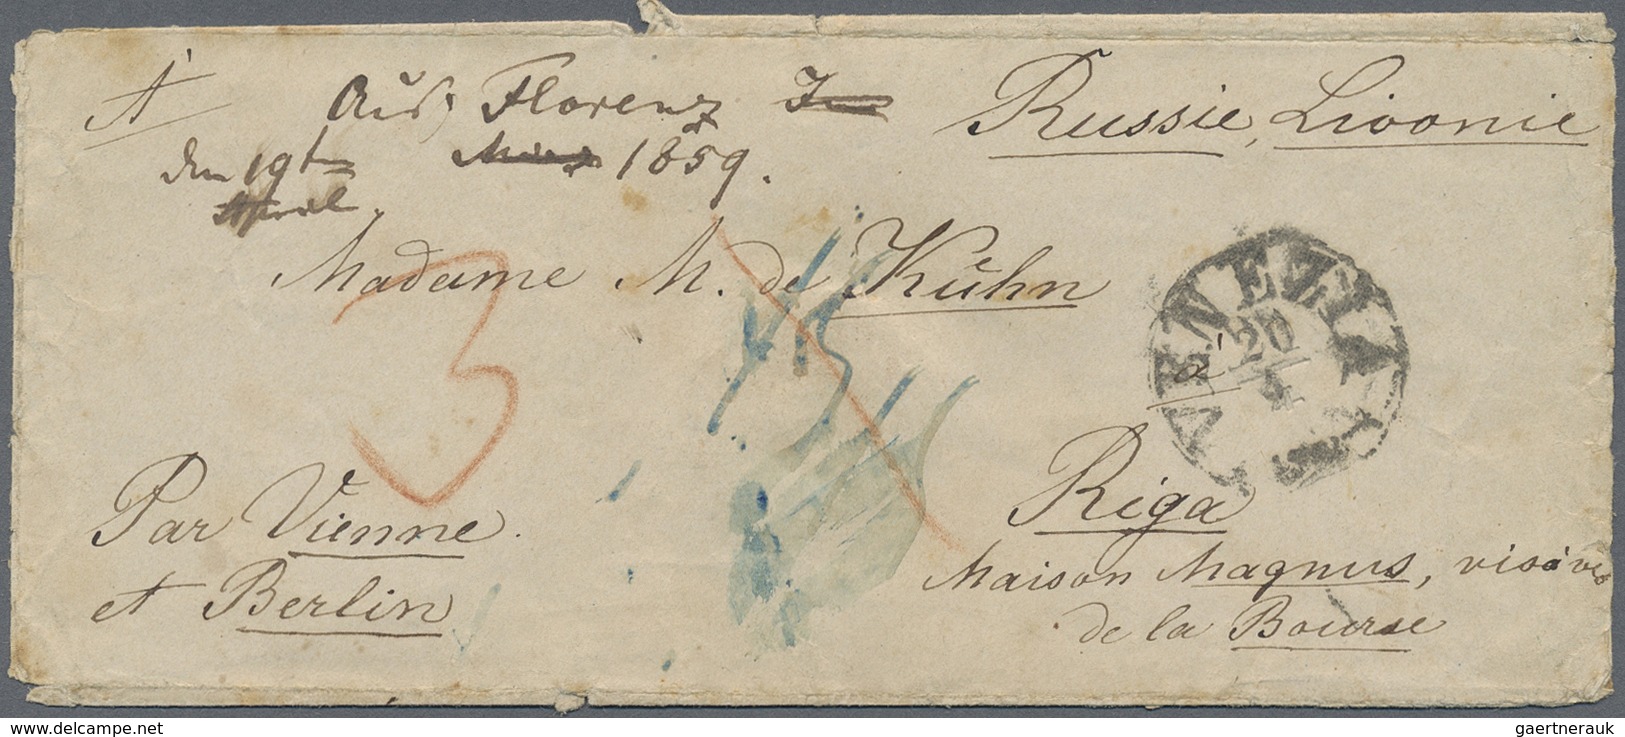 A'
Aus Florenz
Russie, Livonie
den 19t 1859.
April.
Madame M. de Kühn
3
45
VENEZIA
20
4
à
Riga
Par Vienne
et Berlin
Maison Magnus, visàvis
de la Bourse
www.delcampe.net
gaertnerauk